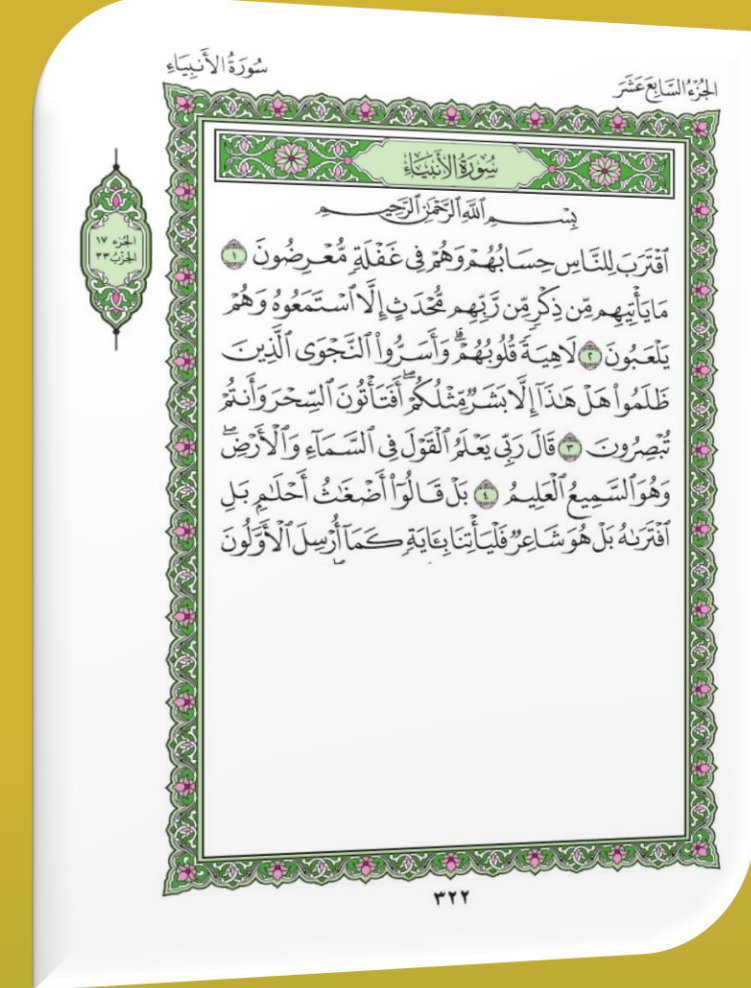 الجُزْءُ السَّابِعَ عَشَرَ
سُورَةُ الأَنبِيَاءِ
سُورَةُ الأَنبِيَاءِ
بِسْمِ ٱللَّهِ ٱلرَّحْمَٰنِ ٱلرَّحِيمِ
ٱقْتَرَبَ لِلنَّاسِ حِسَابُهُمْ وَهُمْ فِي غَفْلَةٍ مُّعْرِضُونَ ١
مَا يَأْتِيهِم مِّن ذِكْرٍ مِّن رَّبِّهِم مُّحْدَثٍ إِلَّا ٱسْتَمَعُوهُ وَهُمْ
يَلْعَبُونَ ٢ لَاهِيَةً قُلُوبُهُمْۗ وَأَسَرُّوا۟ ٱلنَّجْوَى ٱلَّذِينَ
ظَلَمُوا۟ هَلْ هَٰذَآ إِلَّا بَشَرٌ مِّثْلُكُمْۖ أَفَتَأْتُونَ ٱلسِّحْرَ وَأَنتُمْ
تُبْصِرُونَ ٣ قَالَ رَبِّي يَعْلَمُ ٱلْقَوْلَ فِي ٱلسَّمَآءِ وَٱلْأَرْضِۖ
وَهُوَ ٱلسَّمِيعُ ٱلْعَلِيمُ ٤ بَلْ قَالُوٓا۟ أَضْغَٰثُ أَحْلَٰمٍ بَلِ
ٱفْتَرَىٰهُ بَلْ هُوَ شَاعِرٌ فَلْيَأْتِنَا بِـَٔايَةٍ كَمَآ أُرْسِلَ ٱلْأَوَّلُونَ
الجُزء ١٧
الحِزْبُ ٣٣
٣٢٢